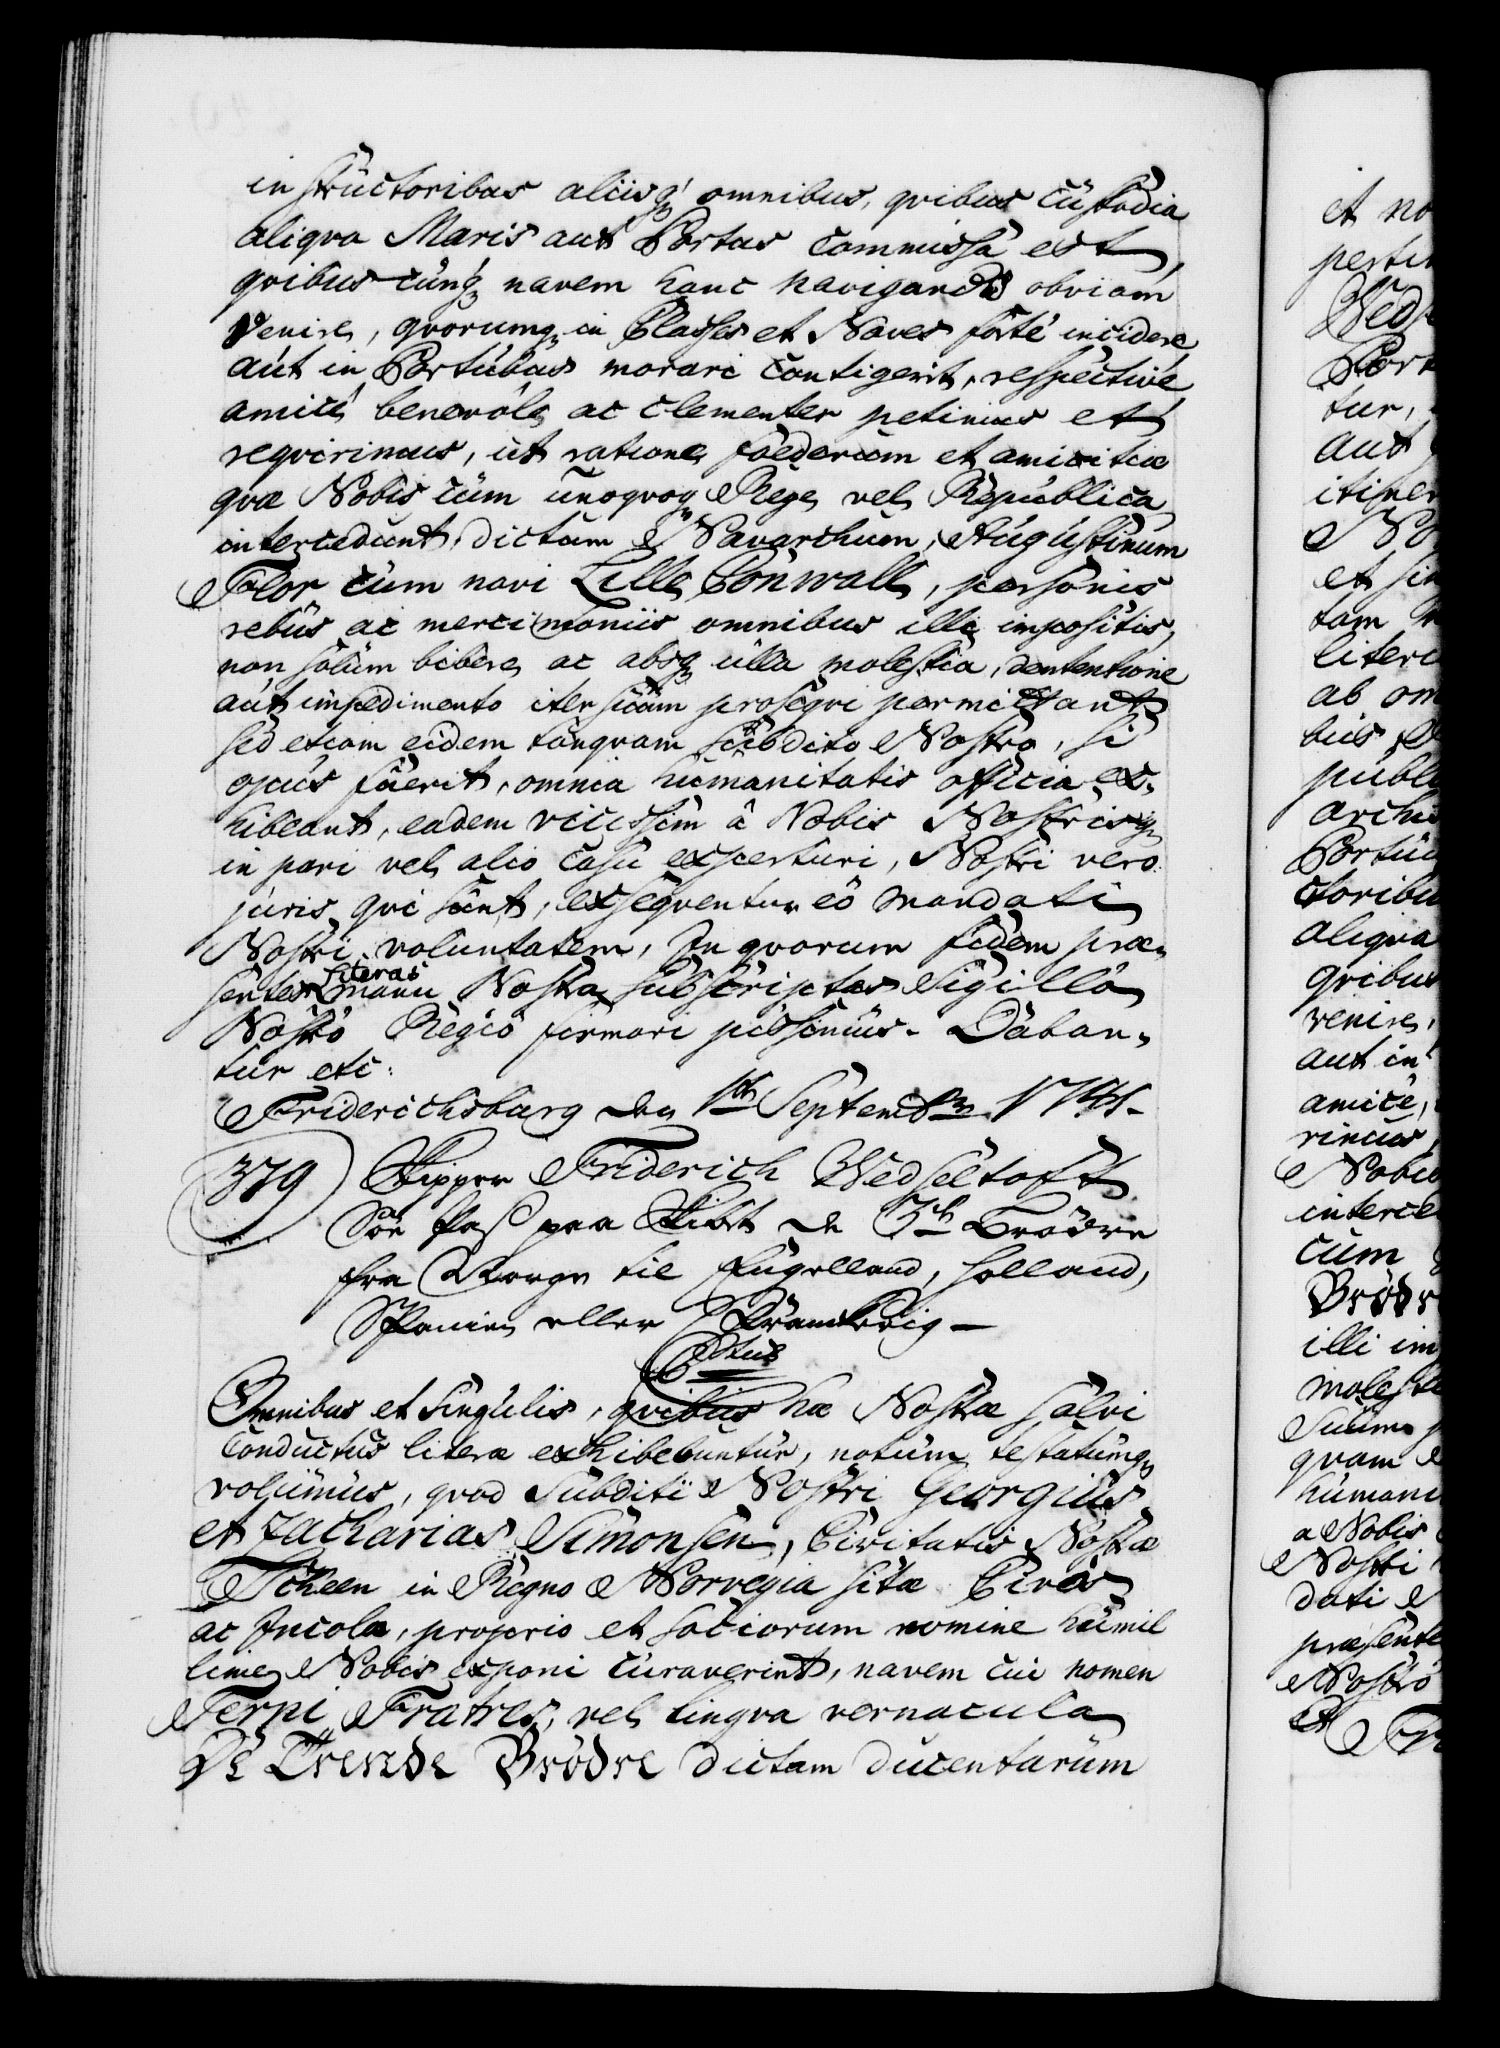 instructoribus aliisq; omnibus, qvibus custodia
aliqva Maris aut Portus commissa est,
qvibuscunq; navem hanc navigando obviam
venire, qvorumq; in Classes et Naves forte incidere
aut in Portubus morari contigerit, respective
amice, benevole ac clementer petimus et
reqvirimus, ut ratione foederum et amicitiæ
qvæ Nobis cum unoqvoq; Rege vel Republica
intercedunt, dictum Navarchum, Augustinum
Flor cum navi Lille Cönwall, personis
rebus ac mercimoniis omnibus illi impositis,
non solum libere ac absq; ulla molestia, dententione
aut impedimento iter suum proseqvi permittant
sed etiam eidem tanqvam subdito Nostro, si
opus fuerit, omnia humanitatis officia ex-
hibeant, eadem vicissim â Nobis Nostrisq;
in pari vel alio casu experturi, Nostri vero
juris qvi sunt, exseqventur eo mandati
Nostri voluntatem, In qvorum fidem præ-
sentes Literas manu Nostra subscriptas Sigillo
Nostro Regio firmari jussimus. Daban-
tur etc:
Friderichsburg den 1ste Septembr 1741.
379 Skipper Friderich Wedseltoft
Søe Pas paa Skibet de 3de Brödre
fra Norge til Engelland, Holland,
Spanien eller Frankrig —
Ctus
Omnibus et singulis, qvibus hæ Nostræ salvi
conductus literæ exhibebuntur, notum testatumq;
volumus, qvod Subditi Nostri Georgius
et Zacharias Simonsen, Civitatis Nostræ
Scheen in Regno Norvegia sitæ Cives
ac Incolæ, proprio et sociorum nomine humil
lime Nobis exponi curaverint, navem cui nomen
Terni Fratres, vel lingva vernacula
De Trende Brödre dictam ducentarum
et no
pertin
Weds
Port
tur,
aut
itiner
No
et sin
tam
liter
ab om
bus
publ
archi
Portu
ctoribu
aliqva
qvibus
venire,
aut in
amice,
rimus,
Nobis
interce
cum
Brödr
illi im
moleste
Suum
qvam
humani
a Nobis
Nostri
dati
præsente
Nostro
et